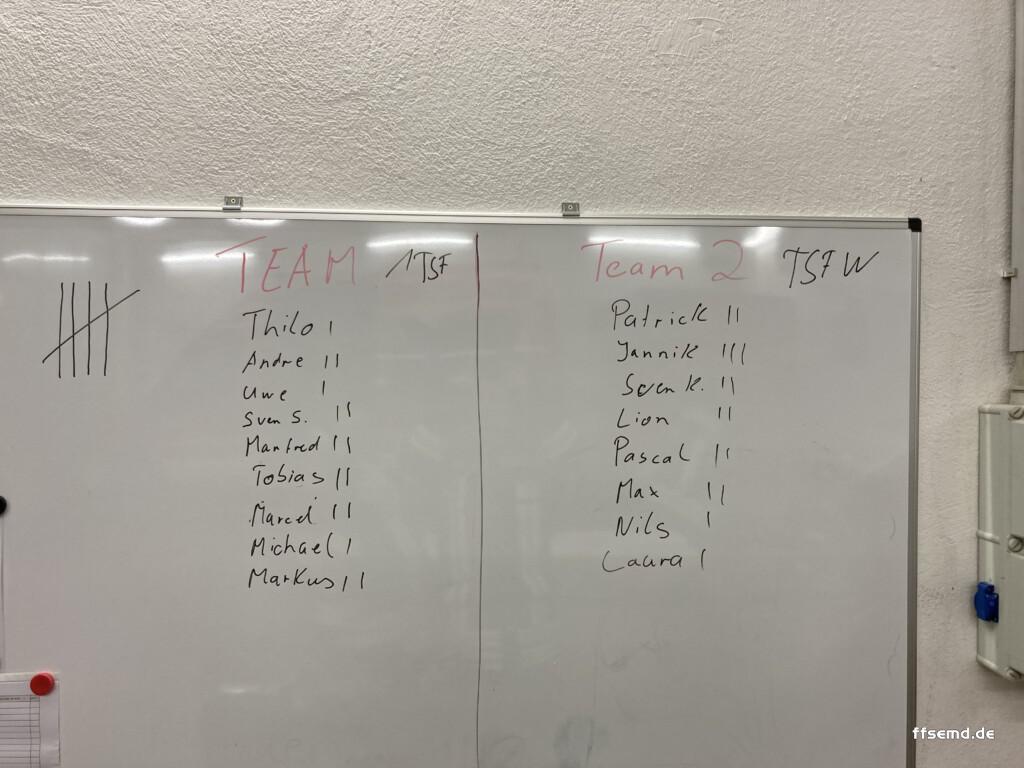 TEAM 1 TSF
Thilo I
Andre II
Uwe I
Sven S. II
Manfred II
Tobias II
Marcel II
Michael I
Markus II
Team 2 TSF W
Patrick II
Jannik III
Sven K. II
Lion II
Pascal II
Max II
Nils I
Laura I
ffsemd.de